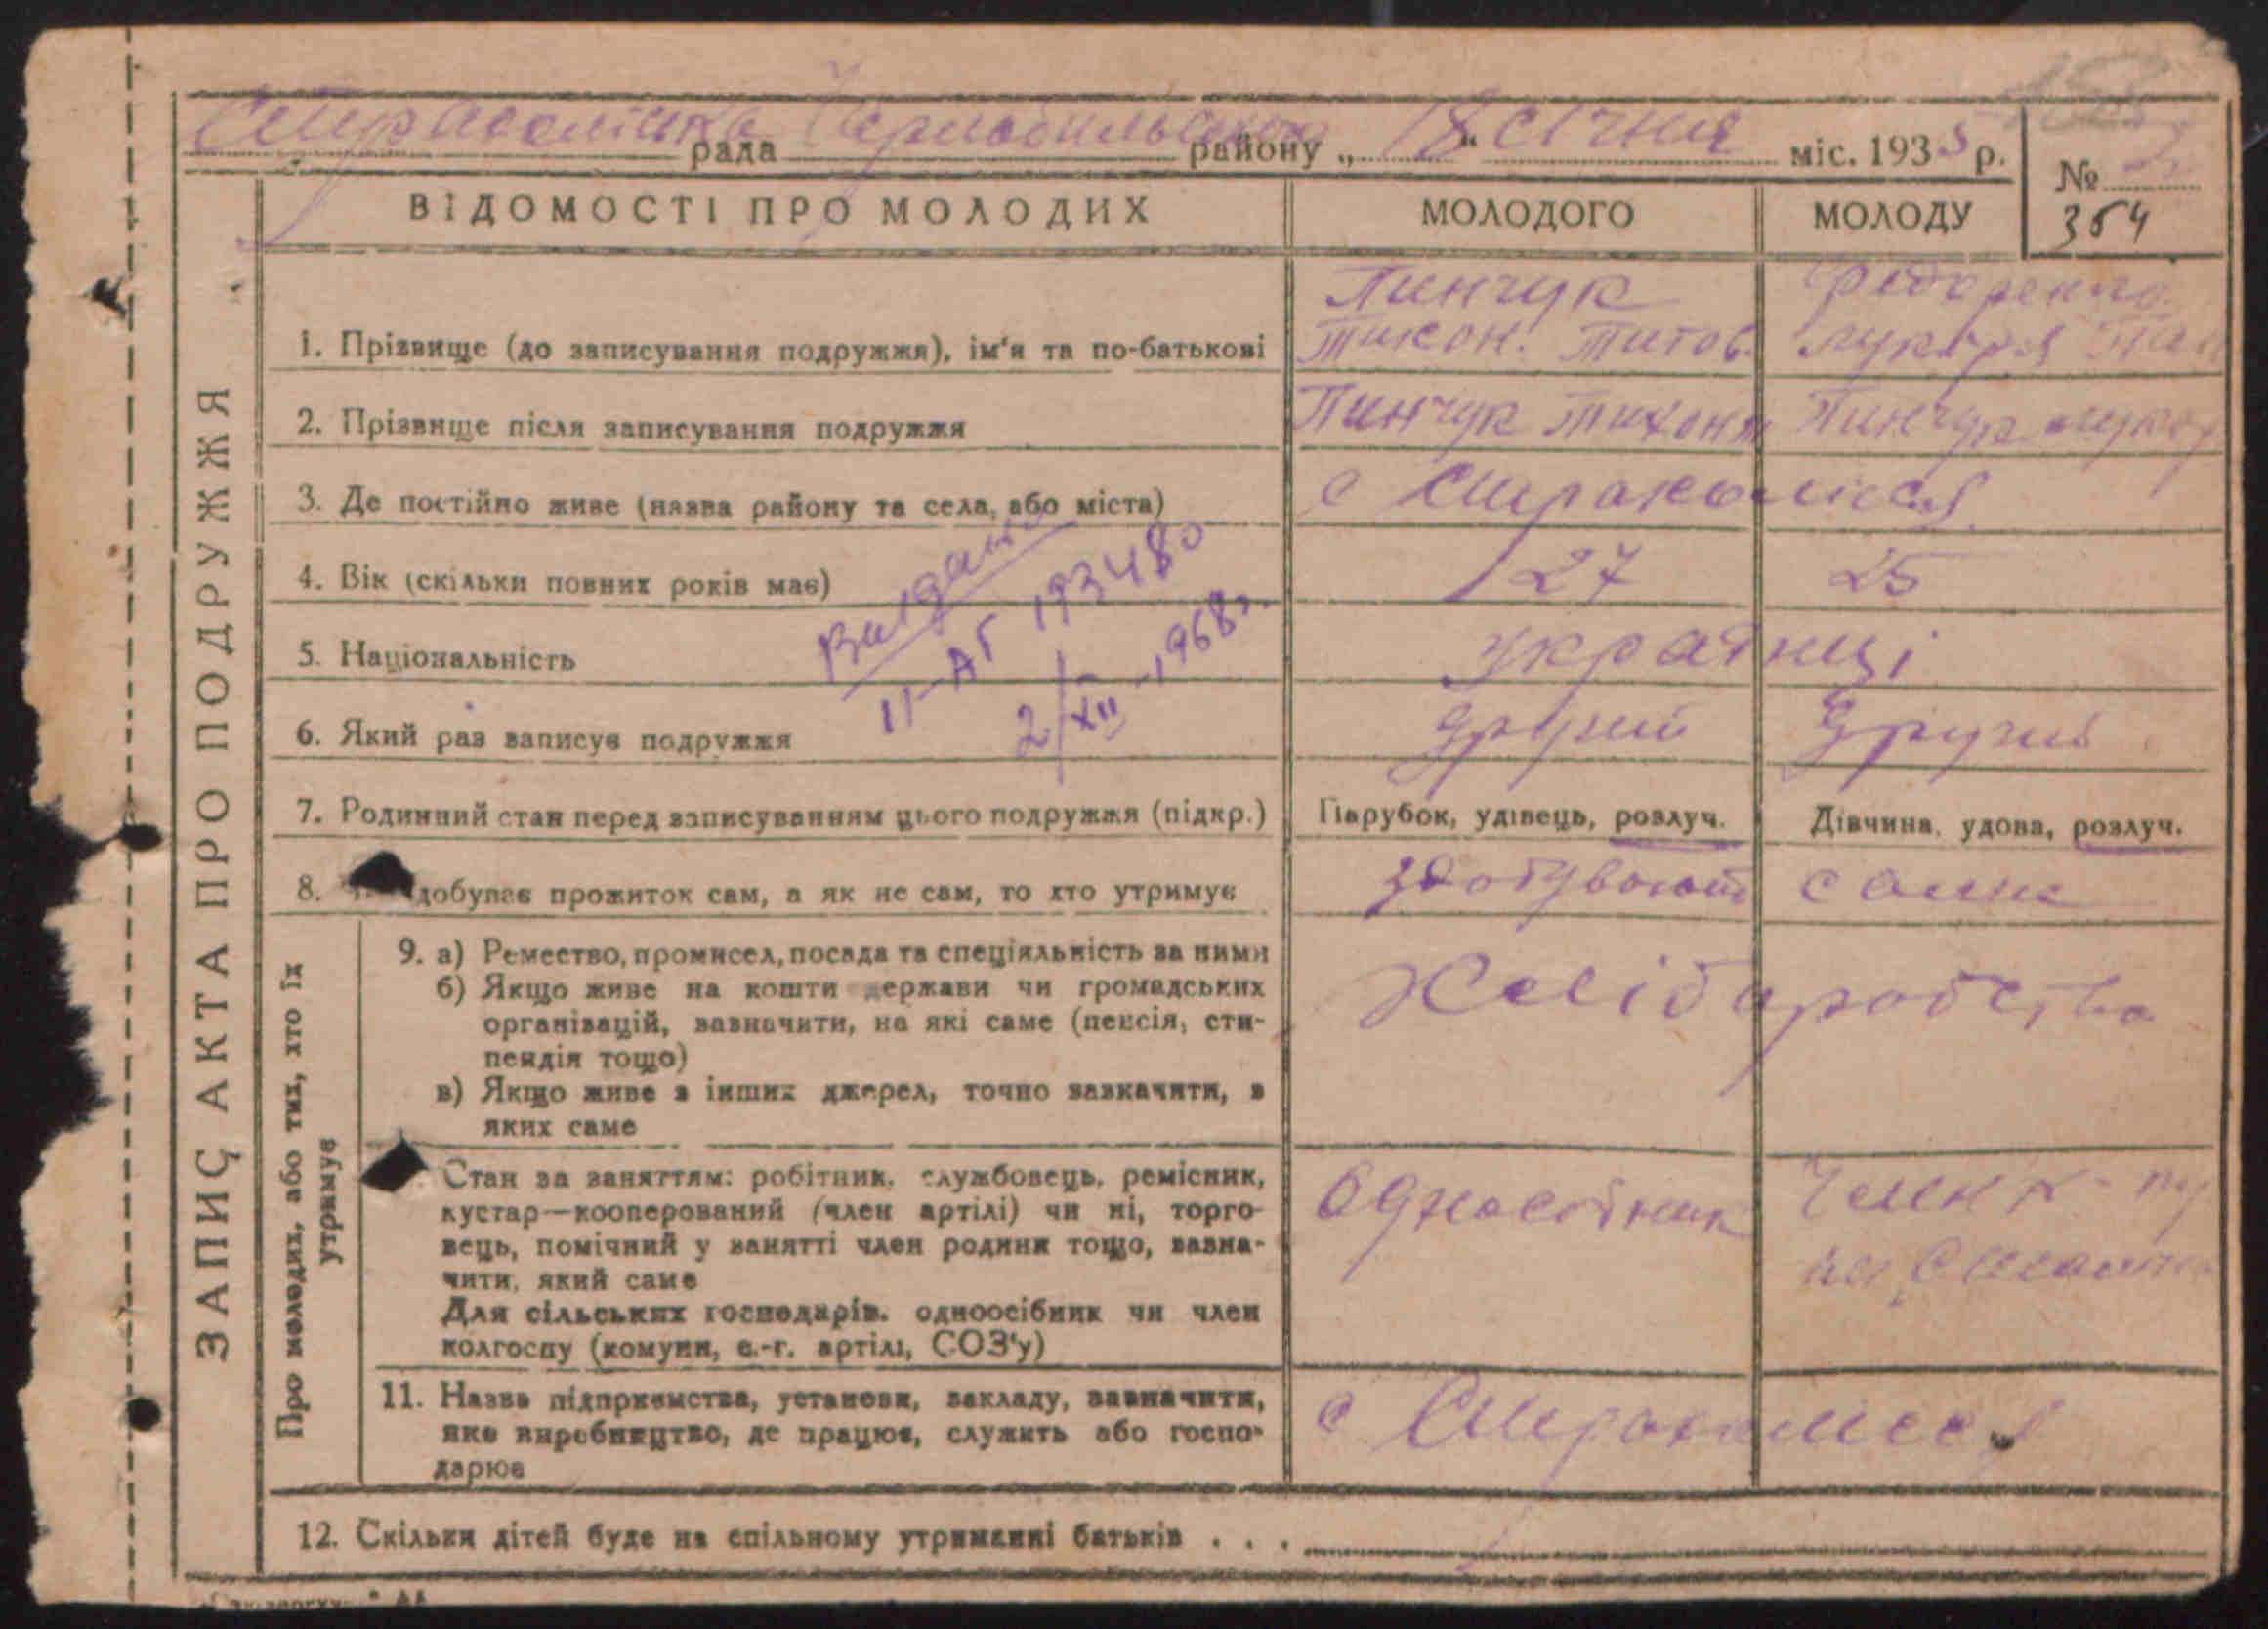 рада Чорнобильського району „ 18 “ січня міс. 1935 р.
№
354
ЗАПИС АКТА ПРО ПОДРУЖЖЯ
ВІДОМОСТІ ПРО МОЛОДИХ МОЛОДОГО МОЛОДУ
Пинчук
1. Прізвище (до записування подружжя), ім'я та по-батькові Тихон. Титов.
2. Прізвище після записування подружжя Пинчук Тихон Пинчук
3. Де постійно живе (назва району та села, або міста) с
4. Вік (скільки повних років має) 27 25
5. Національність українці
6. Який раз записує подружжя другий другий
Видано
II-АГ 193480
2/XII-1968г.
7. Родинний стан перед записуванням цього подружжя (підкр.) Парубок, удівець, розлуч. Дівчина, удова, розлуч.
8. добуває прожиток сам, а як не сам, то хто утримує здобувають сами
Про молодих, або тих, хто їх утримує
9. а) Ремество, промисел, посада та спеціяльність за ними
б) Якщо живе на кошти держави чи громадських
організацій, зазначити, на які саме (пенсія, сти-
пендія тощо)
в) Якщо живе з інших джерел, точно зазначити, з
яких саме
Хліборобство
Стан за заняттям: робітник, службовець, ремісник,
кустар—кооперований (член артілі) чи ні, торго-
вець, помічний у занятті член родини тощо, зазна-
чити, який саме
Для сільських господарів. одноосібник чи член
колгоспу (комуни, с.-г. артілі, СОЗ'у)
Одноосібник Член
11. Назва підприємства, установи, закладу, зазначити,
яке виробництво, де працює, служить або госпо-
дарює
с
12. Скільки дітей буде на спільному утриманні батьків . . .